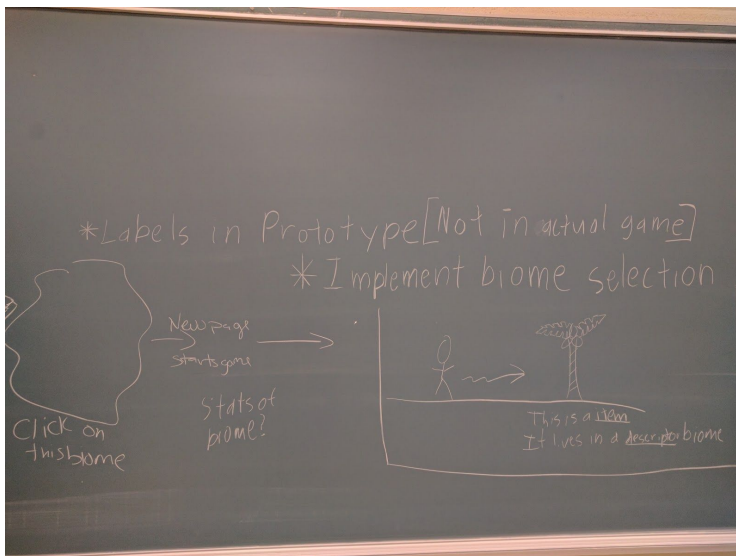 *Labels in Prototype [Not in actual game]
* Implement biome selection
New page
starts game
Click on
this biome
Stats of
biome?
This is a item
It lives in a descriptor biome